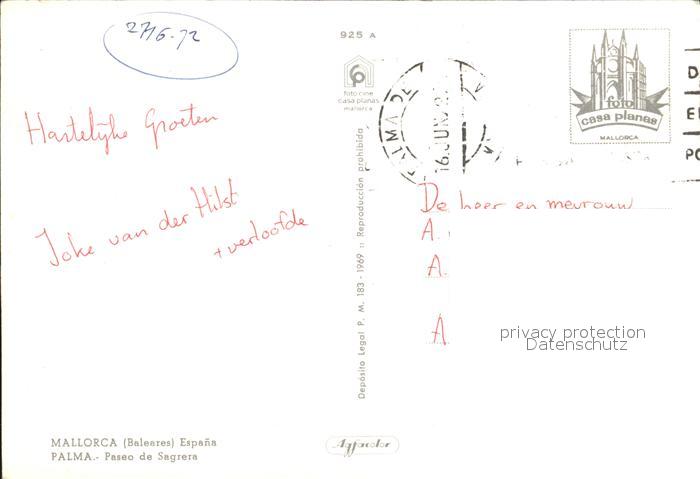 27/6-72
925 A
foto cine
casa planas
mallorca
foto
casa planas
MALLORCA
16.JUN.72
Hartelijke Groeten
Joke van der Hilst
+ verloofde
De heer en mevrouw
A.
A.
A
privacy protection
Datenschutz
Depósito Legal P. M. 183 - 1969 :: Reproducción prohibida
MALLORCA (Baleares) España
PALMA.- Paseo de Sagrera
Agfacolor